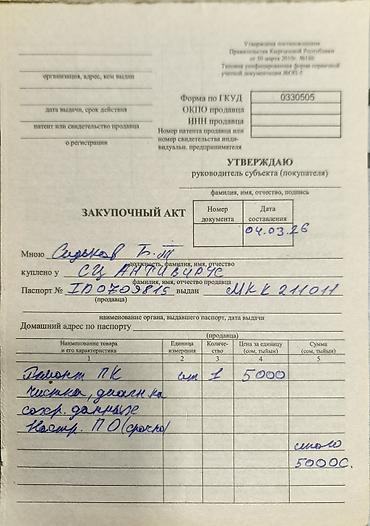 Утверждена постановлением
Правительства Кыргызской Республики
Типовая унифицированная форма первичной
учетной документации
организация, адрес, кем выдан
Форма по ГКУД 0330505
дата выдачи, срок действия
ОКПО продавца
ИНН продавца
патент или свидетельство продавца
Номер патента продавца или
номер свидетельства инди-
видуальн. предпринимателя
о регистрации
УТВЕРЖДАЮ
руководитель субъекта (покупателя)
фамилия, имя, отчество, подпись
ЗАКУПОЧНЫЙ АКТ
Номер документа
Дата составления
04.03.26
Мною Б.Т
должность, фамилия, имя, отчество
куплено у СЦ АНТИВИРУС
фамилия, имя, отчество продавца
Паспорт № ID0709815 выдан МКК 211011
(продавца)
наименование органа, выдавшего паспорт, дата выдачи
Домашний адрес по паспорту
(продавца)
Наименование товара и его характеристика
Единица измерения
Количе-ство
Цена за единицу (сом, тыйын)
Сумма (сом, тыйын)
1 2 3 4 5
Ремонт ПК шт 1 5000
чистка, диагн-ка
сохр. данных
Настр. ПО (срочно)
итого
5000с.